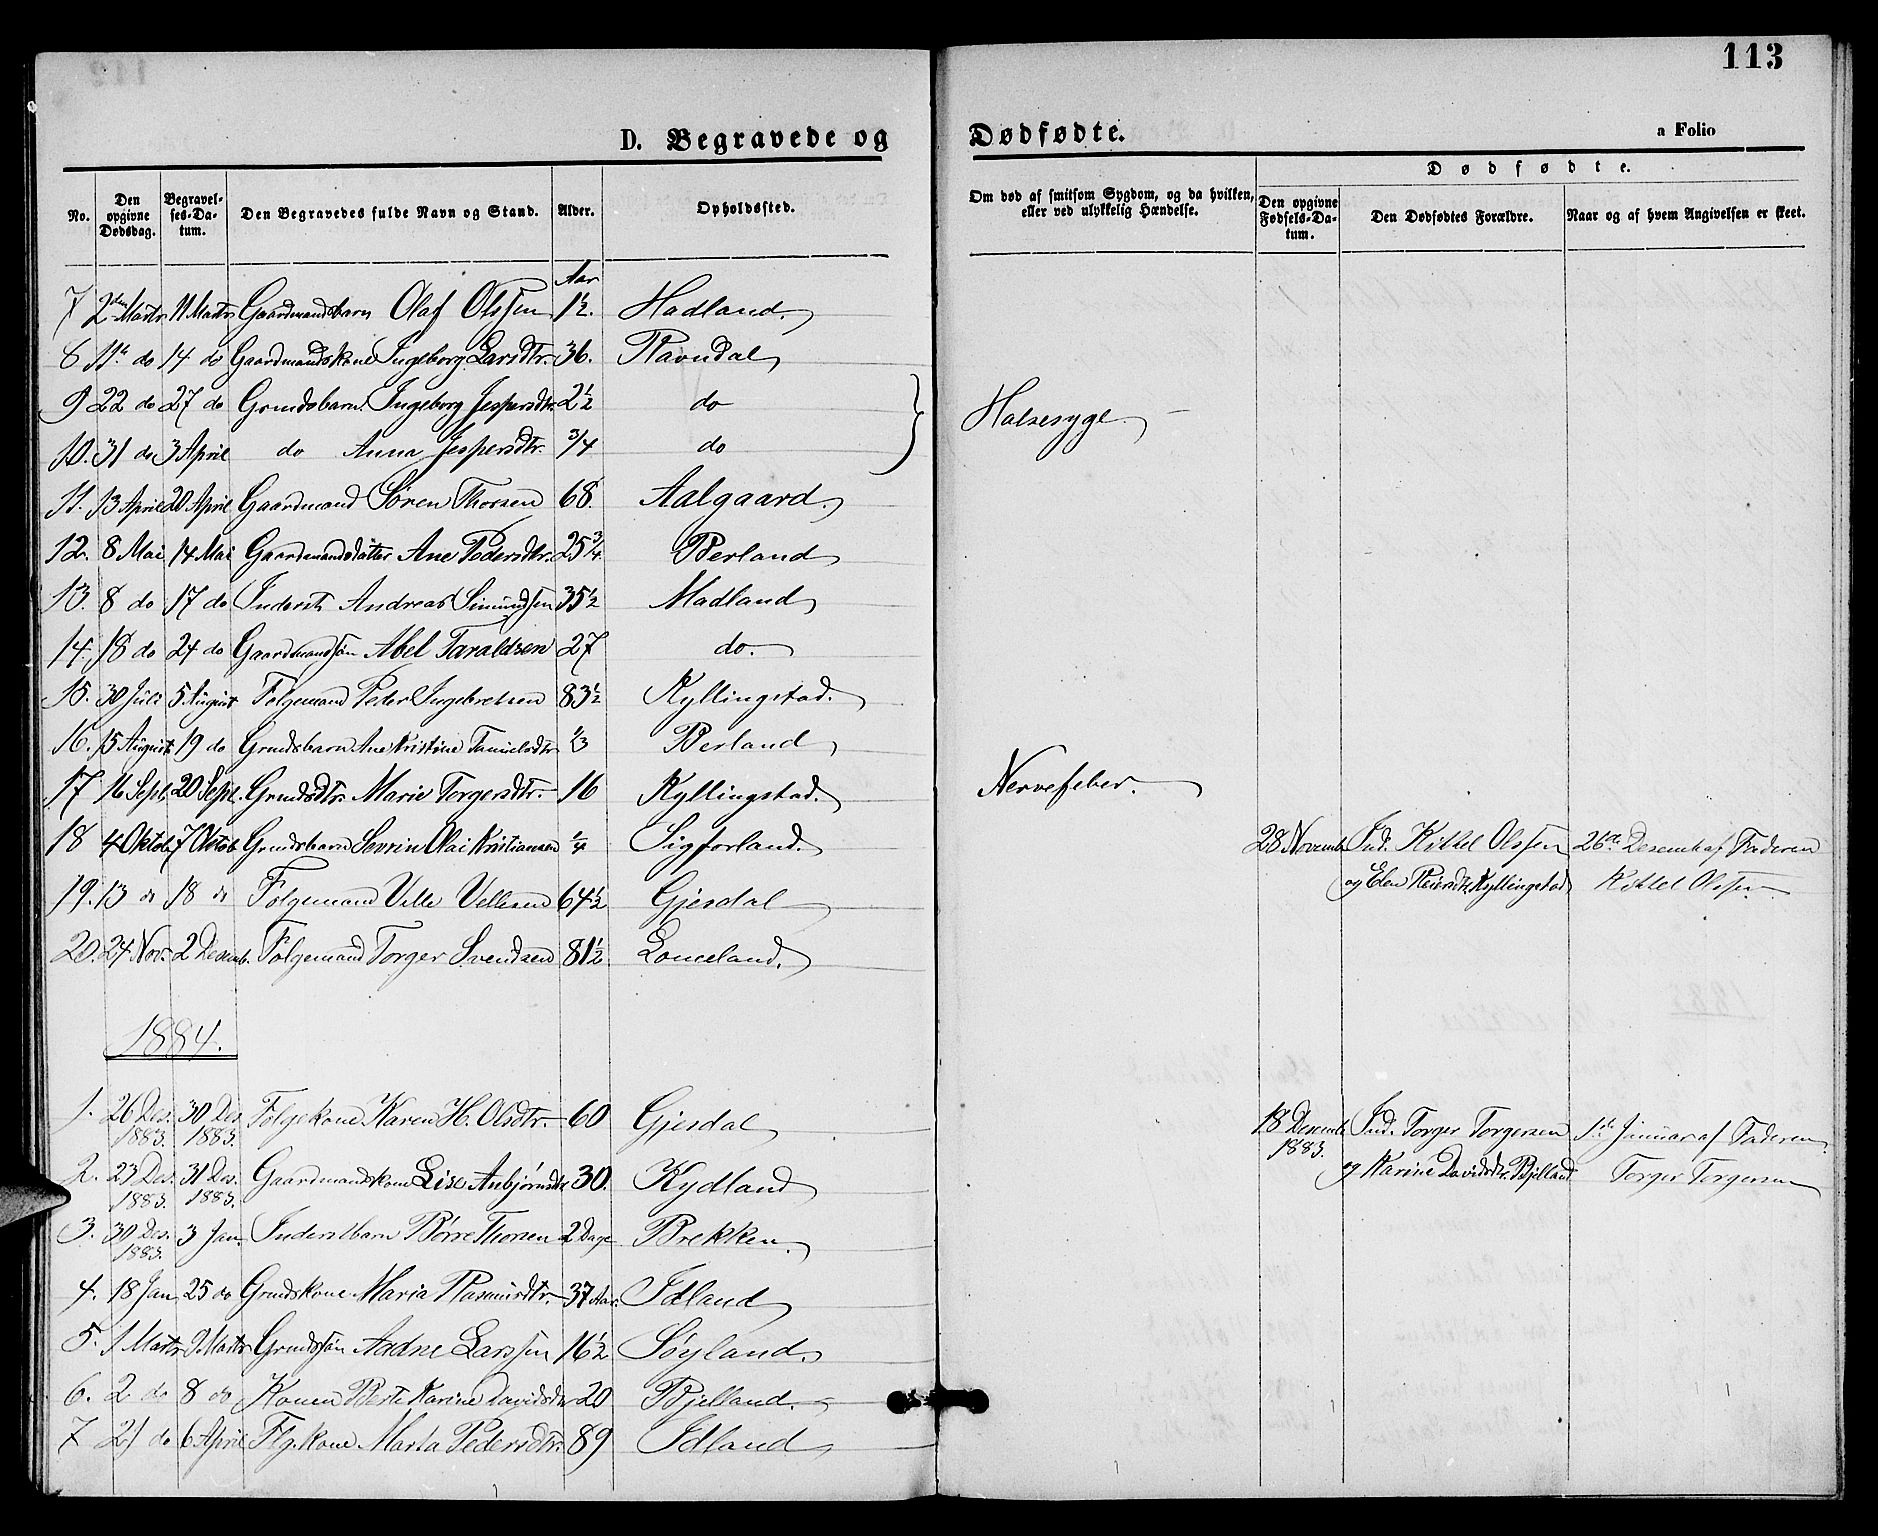 113
D. Begravede og Dødfødte.
a Folio
No.
Den opgivne Dødsdag.
Begravelses-Datum.
Den Begravedes fulde Navn og Stand.
Alder.
Opholdssted.
Om død af smitsom Sygdom, og da hvilken, eller ved ulykkelig Hændelse.
Dødfødte.
Den opgivne Fødsels-Datum.
Den Dødfødtes Forældre.
Naar og af hvem Angivelsen er skeet.
Aar
7 2den Marts 11 Marts Gaardmandsbarn Olaf Olssen 1½. Hadland.
8 11te do 14 do Gaardmandskone Ingeborg Larsdtr. 36. Ravndal
9 22 do 27 do Grmdsbarn Ingeborg Jespersdtr. 2½ do Halsesyge.
10. 31 do 3 April do Anna Jespersdtr. 3/4 do
11. 13 April 20 April Gaardmand Søren Thorsen 68. Aalgaard.
12. 8 Mai 14 Mai Gaardmandsdatter Ane Pedersdtr. 25 3/4 Berland
13. 8 do 17 do Inderst Andreas Simundsen 35½ Madland
14. 18 do 24 do Gaardmandsøn Abel Taraldsen 27 do.
15. 30 Juli 5 August Folgemand Peder Ingebretsen 83½ Kyllingstad.
16. 15 August 19 do Grmdsbarn Ane Kristine Danielsdtr 1/3 Berland
17 16 Sept. 20 Sept. Grmdsdtr. Marie Torgersdtr. 16 Kyllingstad. Nervefeber.
18 4 Oktob. 7 Oktob. Grmdsbarn Sevrin Olai Kristiansen ¼ Sigforland. 28 Novemb. Ind. Kittel Olssen 26de Desemb af Faderen
og Elen Reiersdtr Kyllingstad Kittel Olssen
19. 13 do 18 do Folgemand Velle Vellesen 64½ Gjesdal
20. 24 Nov. 2 Desemb. Folgemand Torger Svendsen 81½ Lomeland.
1884.
1. 26 Des. 1883. 30 Des 1883. Folgekone Karen H. Olsdtr. 60 Gjesdal 18 Desemb. 1883. Ind. Torger Torgersen 1ste Januar af Faderen
og Karine Davidsdtr. Bjelland Torger Torgersen
2. 23 Des. 1883. 31 Des. 1883. Gaardmandskone Lise Anbjørnsdtr 30. Kydland
3. 30 Des. 1883. 3 Jan. Inderstbarn Børre Thorsen 2 Dage Brekken.
4. 18 Jan 25 do Grmdskone Maria Rasmusdtr. 37 Aar. Idland
5. 1 Marts 9 Marts Grmdssøn Aadne Larssen 16½ Søyland.
6. 2 do 8 do Konen Berte Karine Davidsdtr 20 Bjelland.
7 21 do 6 April Flg.kone Marta Pedersdtr. 89 Idland